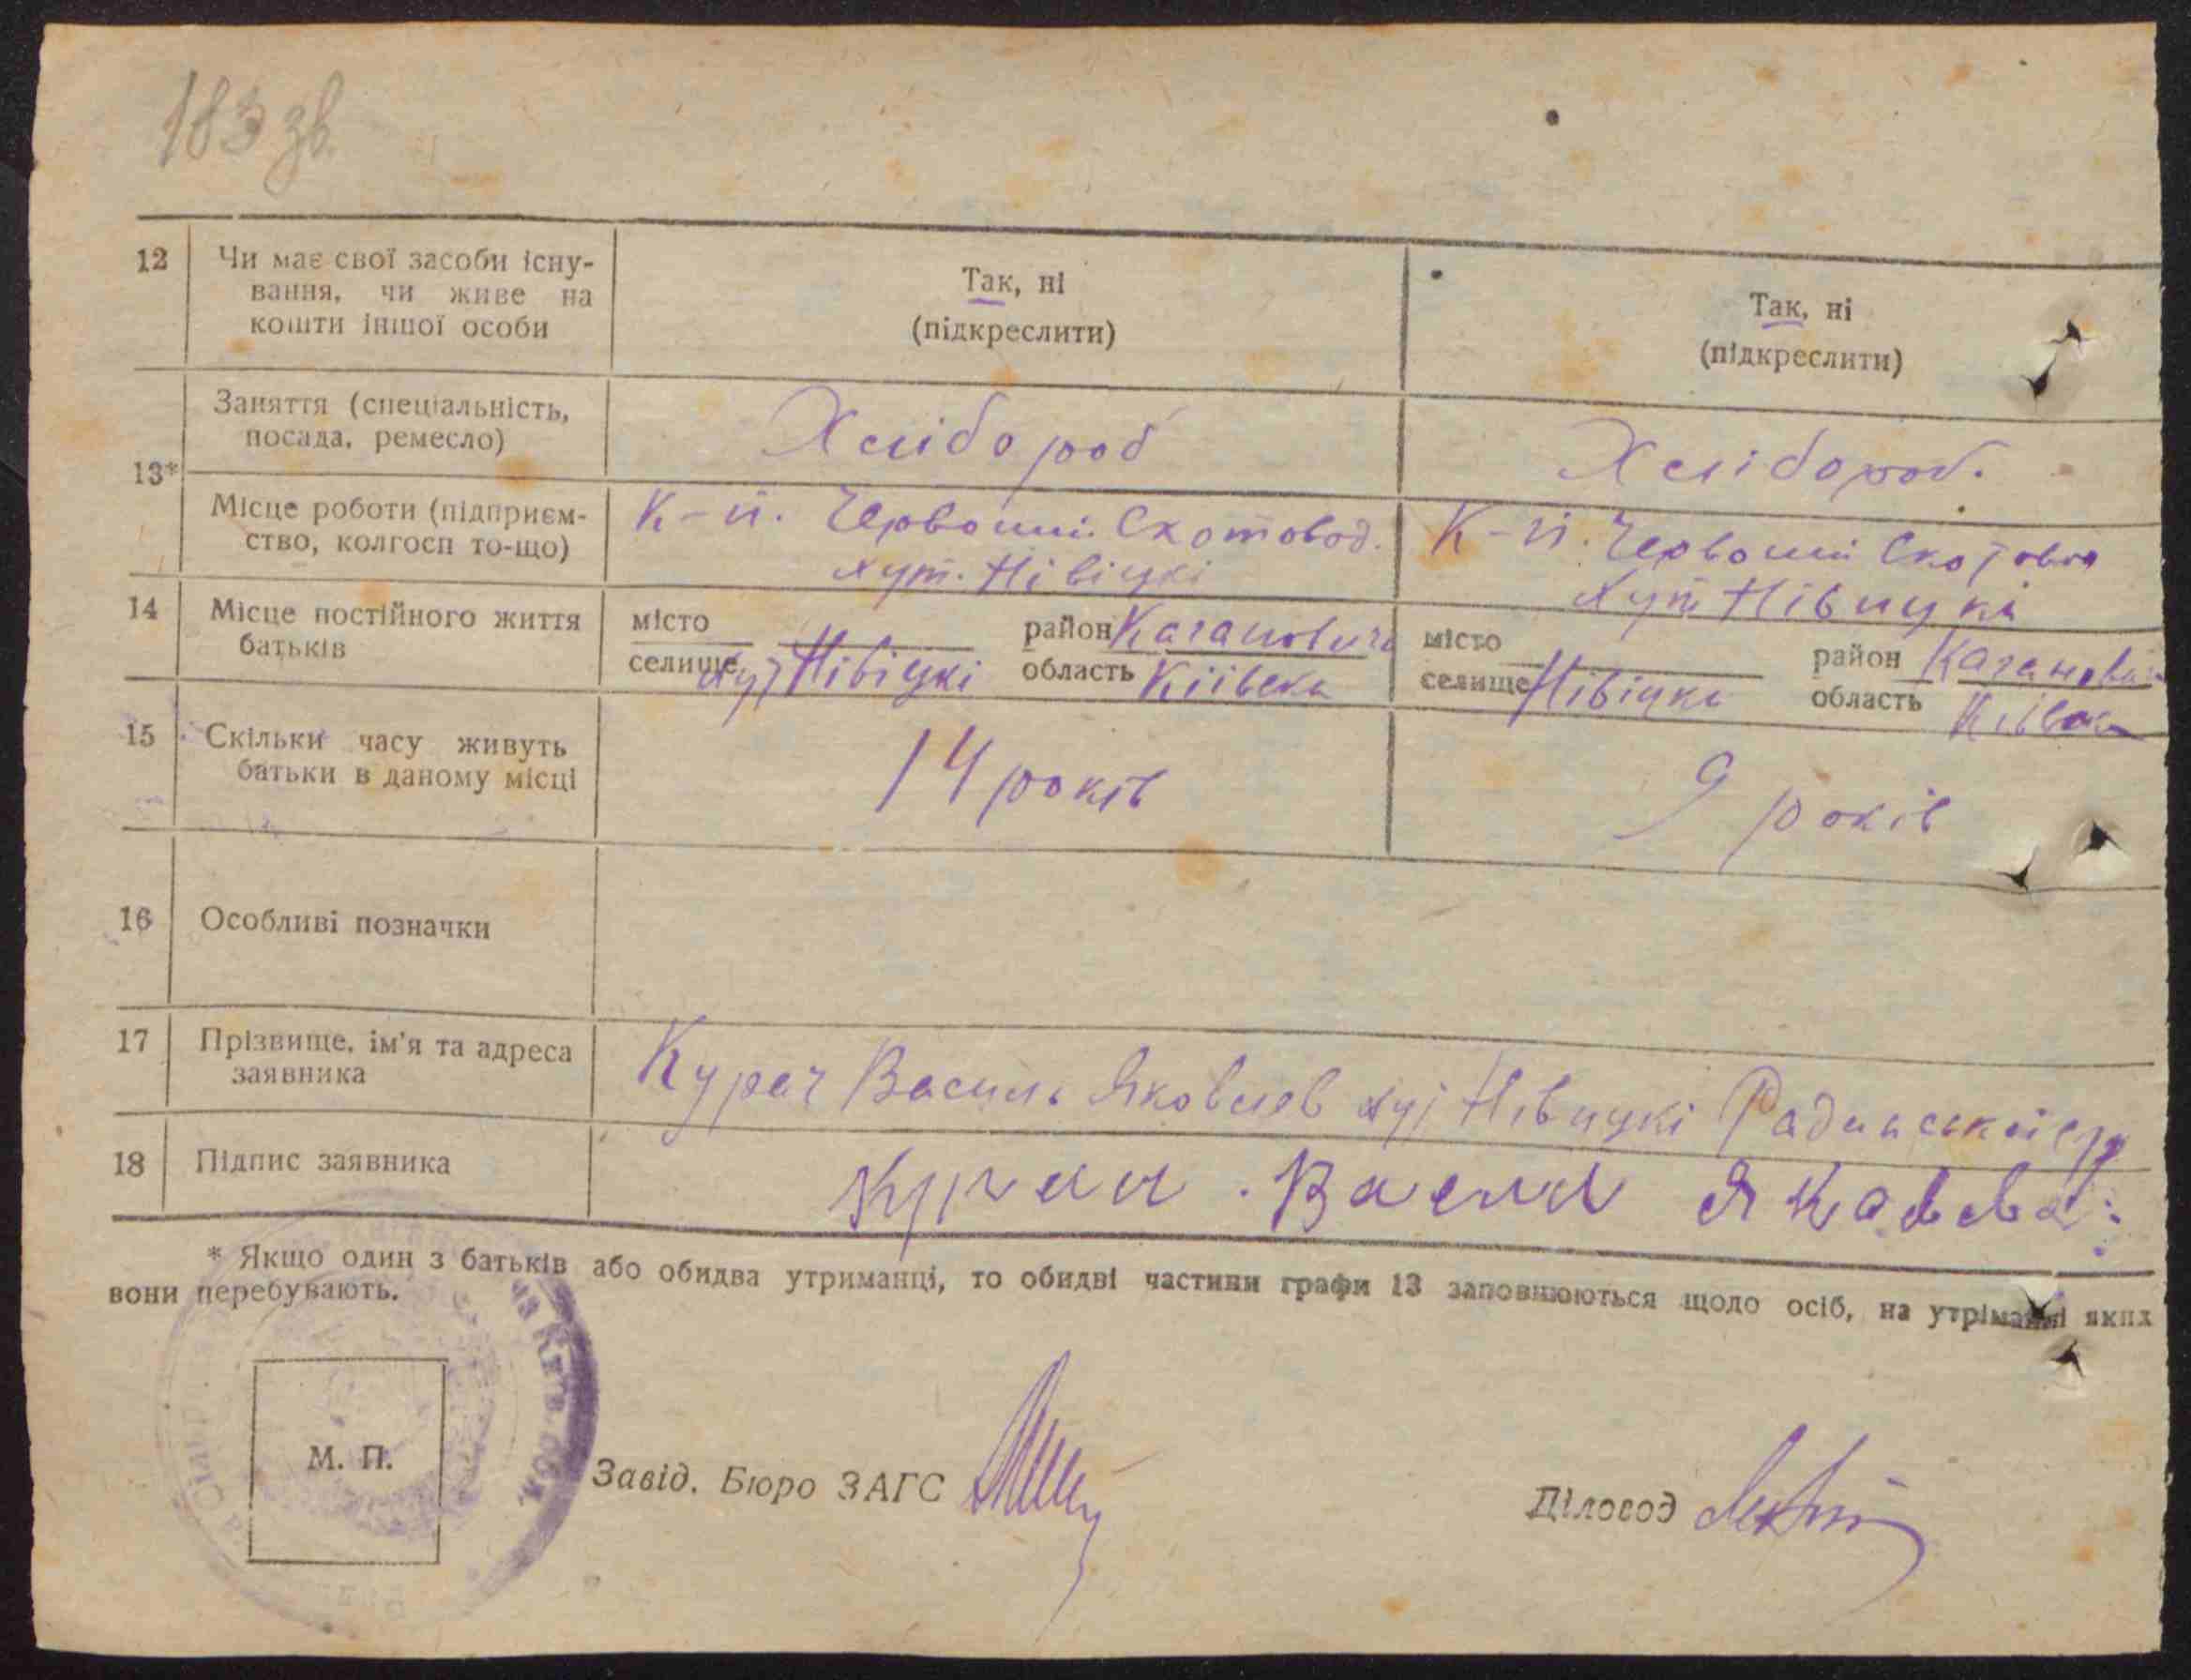 183 зв.
12 Чи має свої засоби існу-
вання, чи живе на
кошти іншої особи
Так, ні
(підкреслити)
Так, ні
(підкреслити)
13*
Заняття (спеціальність,
посада, ремесло)
Хлібороб
Хлібороб.
Місце роботи (підприєм-
ство, колгосп то-що)
К-п. Червоний Скотовод.
хут. Нівіцкі
К-п. Червоний Скотовод
хут Нівицкі
14 Місце постійного життя
батьків
місто
селище хут Нівіцкі
район Кагановича
область Київська
місто
селище Нівіцкі
район
область
15 Скільки часу живуть
батьки в даному місці
14 років
9 років
16 Особливі позначки
17 Прізвище, ім'я та адреса
заявника
Курач Василь Яковлев хут Нівицкі
18 Підпис заявника
* Якщо один з батьків або обидва утриманці, то обидві частини графи 13 заповнюються щодо осіб, на утріманні яких
вони перебувають.
М. П.
Завід. Бюро ЗАГС
Діловод